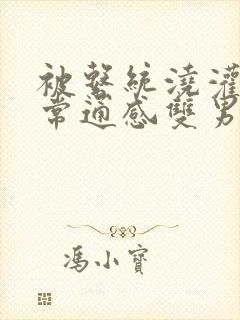 被繫統澆灌
常適感雙男
馮小寶